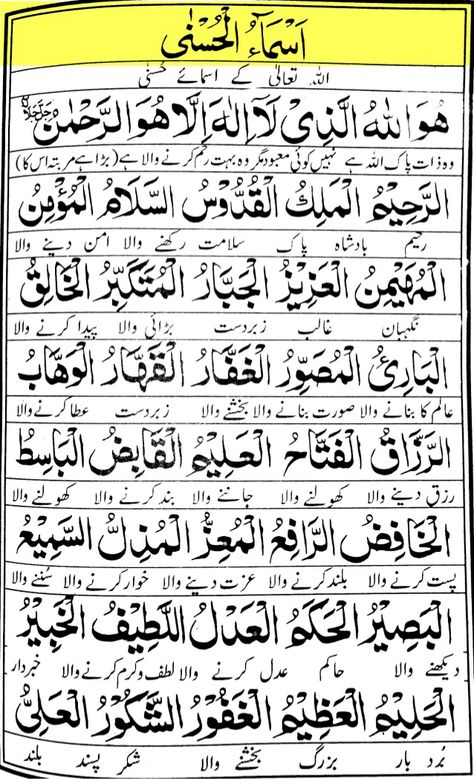 اَسْمَآءُ الْحُسْنٰی
اللہ تعالیٰ کے اسمائے حسنٰی
هُوَ اللهُ الَّذِیْ لَاۤ اِلٰهَ اِلَّا هُوَ الرَّحْمٰنُ
وہ ذات پاک اللہ ہے نہیں کوئی معبود مگر وہ بہت رحم کرنے والا ہے (بڑا ہے مرتبہ اس کا)
الرَّحِیْمُ الْمَلِكُ الْقُدُّوْسُ السَّلَامُ الْمُؤْمِنُ
رحیم بادشاہ پاک سلامت رکھنے والا امن دینے والا
الْمُهَیْمِنُ الْعَزِیْزُ الْجَبَّارُ الْمُتَكَبِّرُ الْخَالِقُ
نگہبان غالب زبردست بڑائی والا پیدا کرنے والا
الْبَارِئُ الْمُصَوِّرُ الْغَفَّارُ الْقَهَّارُ الْوَهَّابُ
عالم کا بنانے والا صورت بنانے والا بخشنے والا زبردست عطا کرنے والا
الرَّزَّاقُ الْفَتَّاحُ الْعَلِیْمُ الْقَابِضُ الْبَاسِطُ
رزق دینے والا کھولنے والا جاننے والا بند کرنے والا کھولنے والا
الْخَافِضُ الرَّافِعُ الْمُعِزُّ الْمُذِلُّ السَّمِیْعُ
پست کرنے والا بلند کرنے والا عزت دینے والا خوار کرنے والا سُننے والا
الْبَصِیْرُ الْحَكَمُ الْعَدْلُ اللَّطِیْفُ الْخَبِیْرُ
دیکھنے والا حاکم عدل کرنے والا لطف و کرم کرنے والا خبردار
الْحَلِیْمُ الْعَظِیْمُ الْغَفُوْرُ الشَّكُوْرُ الْعَلِیُّ
بُرد بار بزرگ بخشنے والا شکر پسند بلند